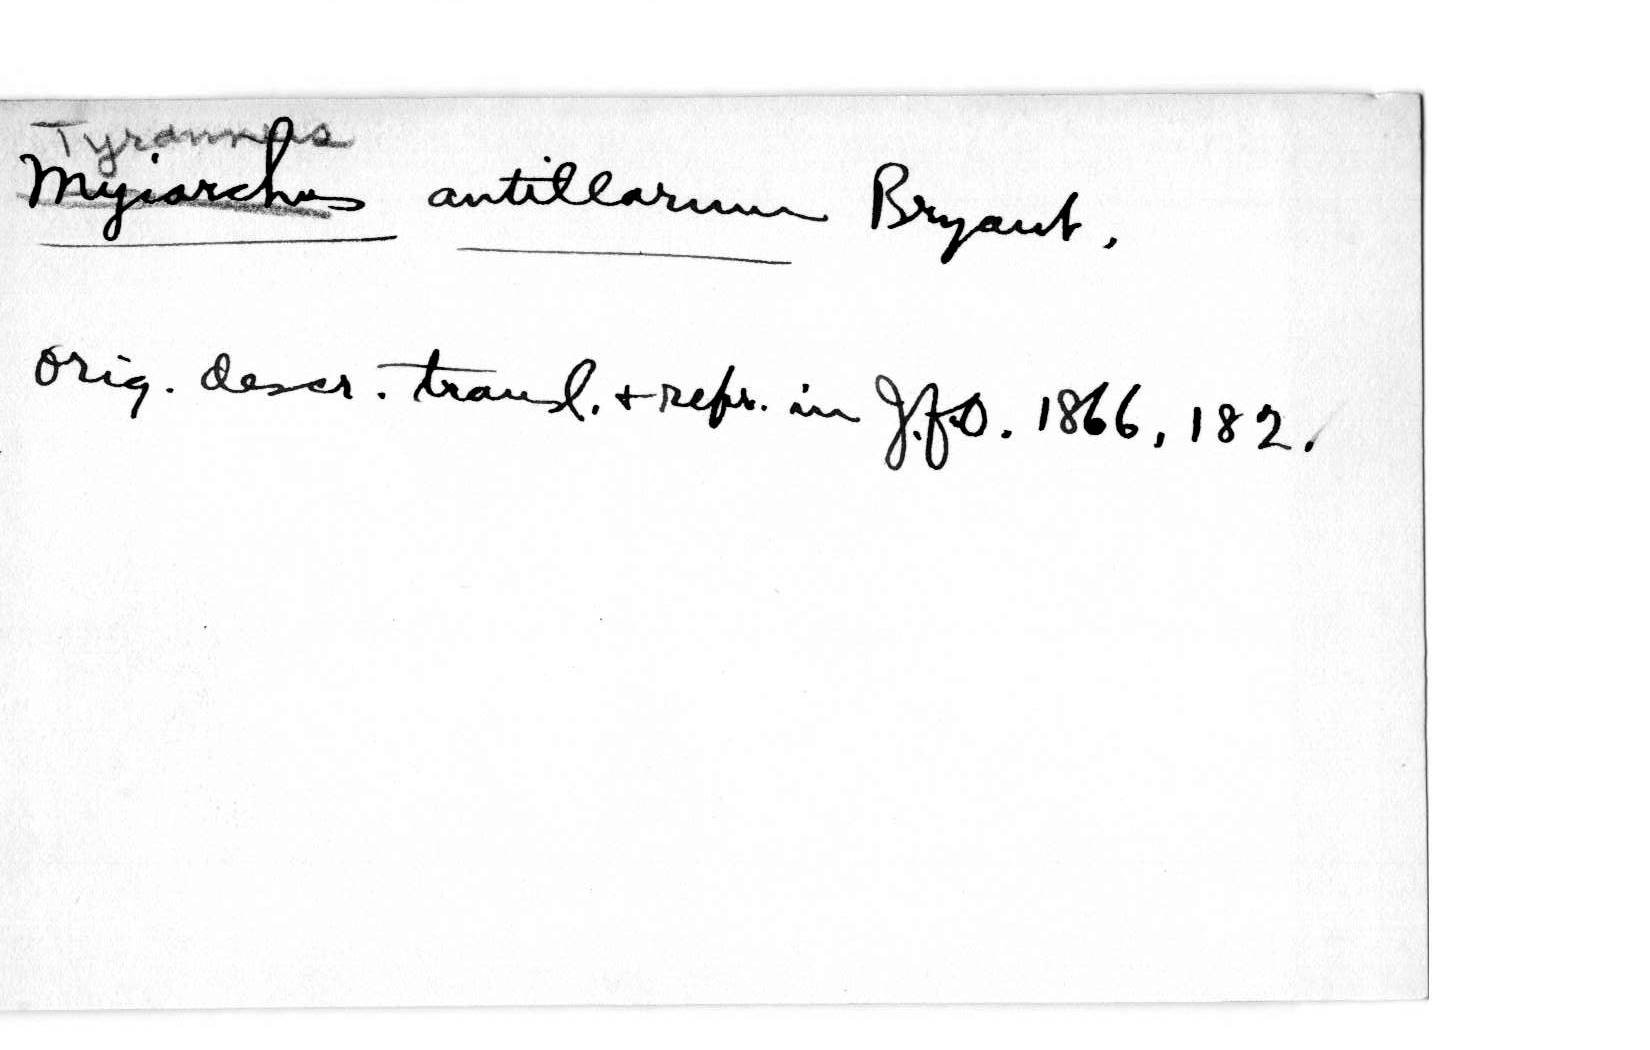 Tyrannus
Myiarchus antillarum Bryant,
orig. descr. transl. + repr. in J.f.O. 1866, 182.